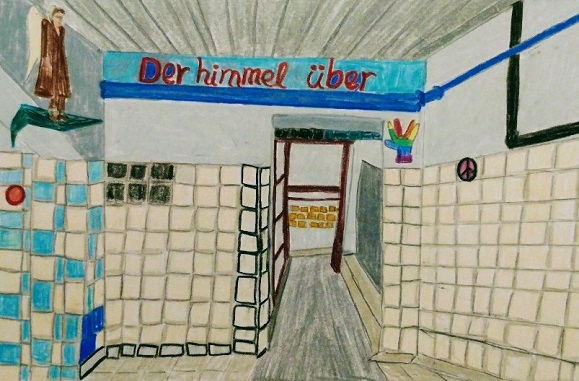 Der himmel über